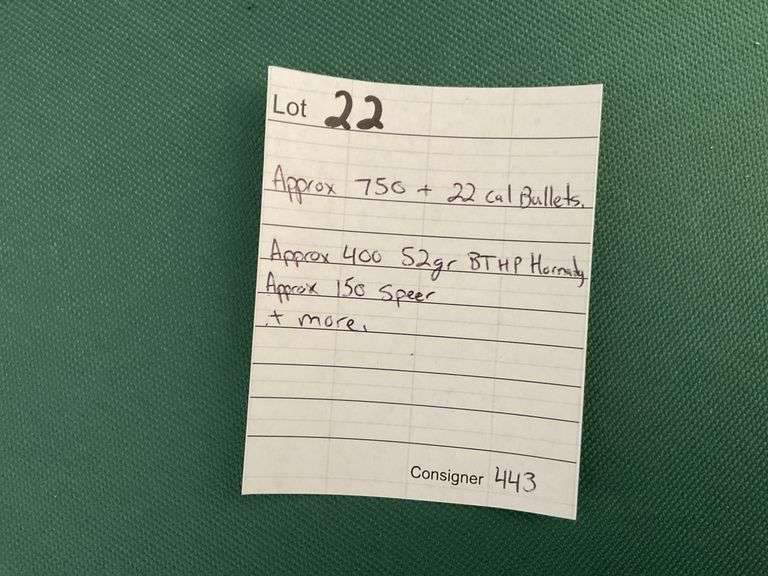 Lot 22
Approx 750 + 22 cal Bullets.
Approx 400 52gr BTHP Hornady
Approx 150 Speer
+ more.
Consigner 443